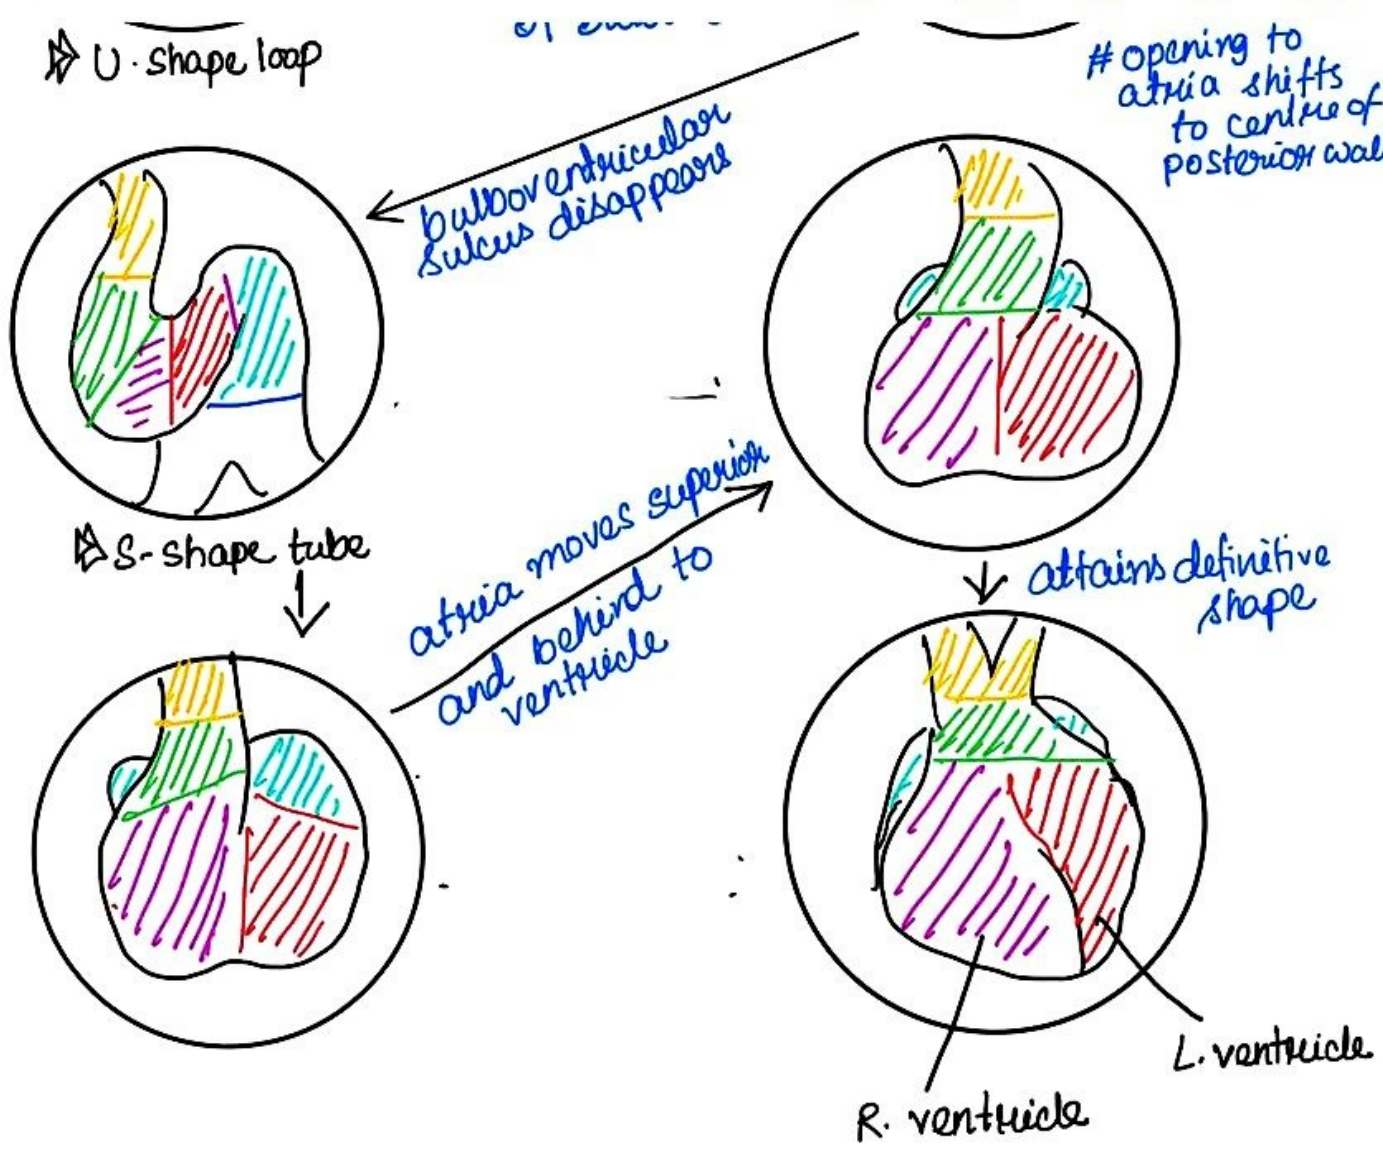 U-shape loop
# opening to
atria shifts
to centre of
posterior wal
bulboventricular
sulcus disappears
S-shape tube
atria moves superior
and behind to
ventricle
attains definitive
shape
L. ventricle
R. ventricle